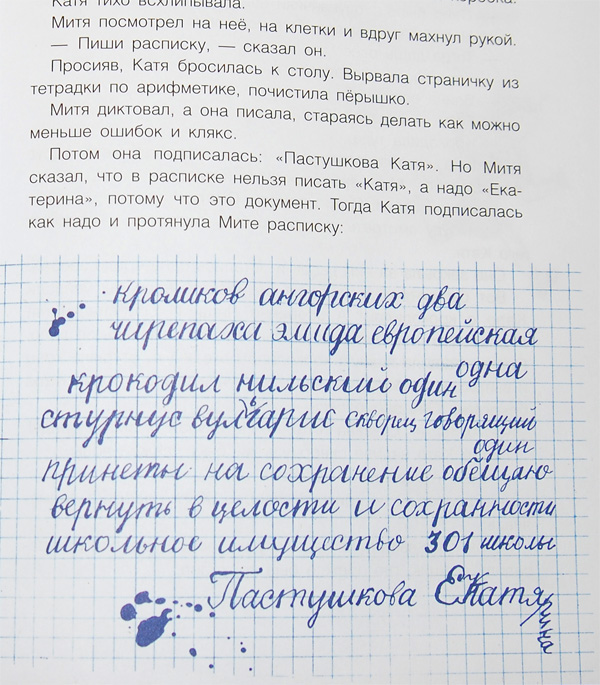 Катя тихо всхлипывала.
Митя посмотрел на неё, на клетки и вдруг махнул рукой.
— Пиши расписку, — сказал он.
Просияв, Катя бросилась к столу. Вырвала страничку из
тетрадки по арифметике, почистила пёрышко.
Митя диктовал, а она писала, стараясь делать как можно
меньше ошибок и клякс.
Потом она подписалась: «Пастушкова Катя». Но Митя
сказал, что в расписке нельзя писать «Катя», а надо «Ека-
терина», потому что это документ. Тогда Катя подписалась
как надо и протянула Мите расписку:
кроликов ангорских два
чирепаха эмида европейская
одна
крокодил нильский один
стурнус вулгарис скворец говорящий
один
принеты на сохранение обещаю
вернуть в целости и сохранности
школьное имущество 301 школы
Пастушкова Екатярина